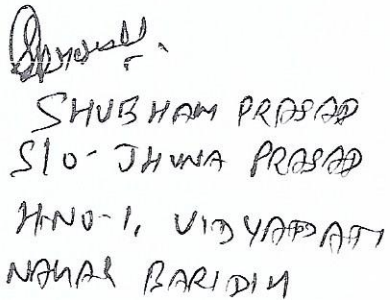 SHUBHAM PRASAD
S/O - JHUNA PRASAD
H.NO-1, VIDYAPATI
NAGAR BARIDIH